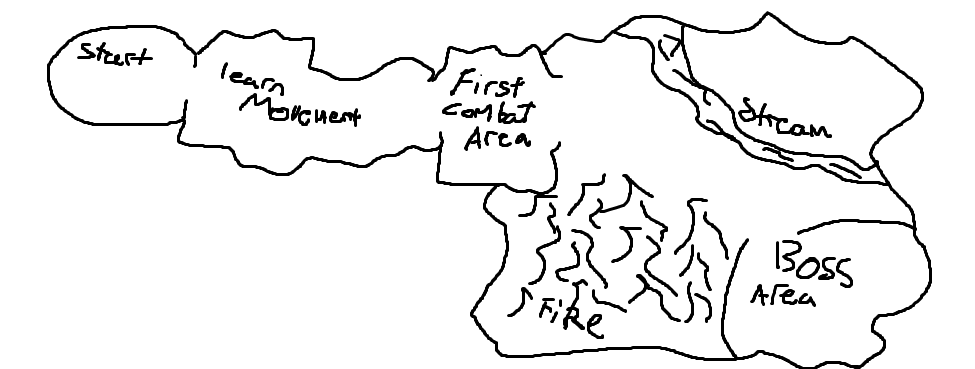 Start
learn
Movement
First
Combat
Area
Stream
Boss
Area
Fire